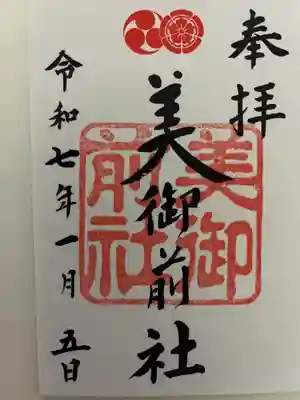 奉拝
美御前社
美御
前社
令和七年一月五日